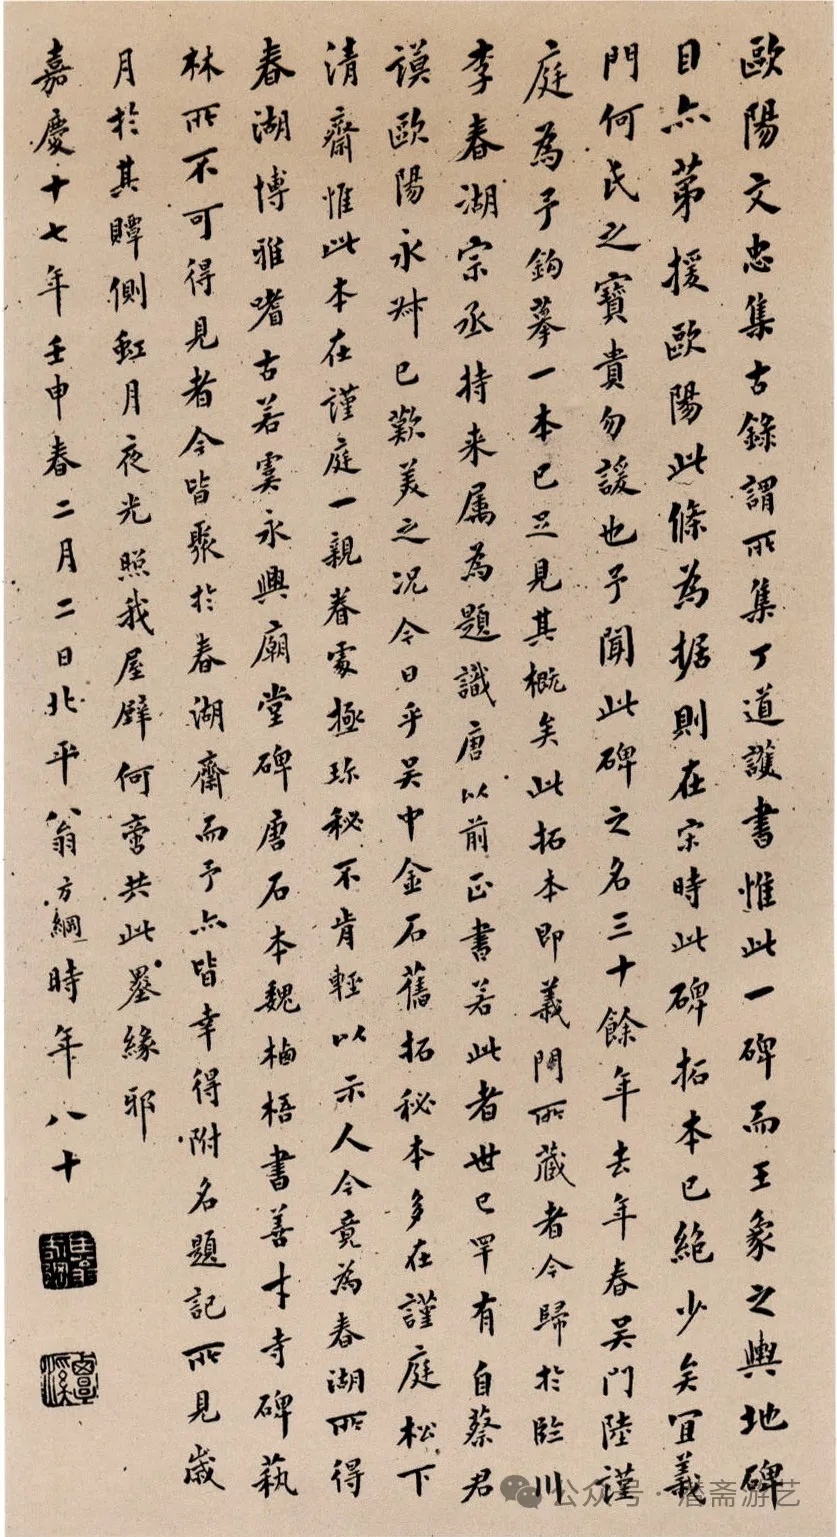 歐陽文忠集古錄謂所集丁道護書惟此一碑而王象之輿地碑
目亦第援歐陽此條為据則在宋時此碑拓本已絕少矣宜義
門何氏之寶貴勿諼也予聞此碑之名三十餘年去年春吳門陸謹
庭為予鉤摹一本已足見其概矣此拓本即義門所藏者今歸於臨川
李春湖宗丞持来属為題識唐以前正書若此者世已罕有自蔡君
謨歐陽永叔已歎美之况今日乎吳中金石舊拓秘本多在謹庭松下
清齋惟此本在謹庭一親眷處極珎秘不肯輕以示人今竟為春湖所得
春湖博雅嗜古若虞永興廟堂碑唐石本魏栖梧書善才寺碑蓺
林所不可得見者今皆聚於春湖齋而予亦皆幸得附名題記所見歲
月於其贉側虹月夜光照我屋壁何啻共此墨緣邪
嘉慶十七年壬申春二月二日北平翁方綱時年八十
覃溪
公众号·潜斋游艺